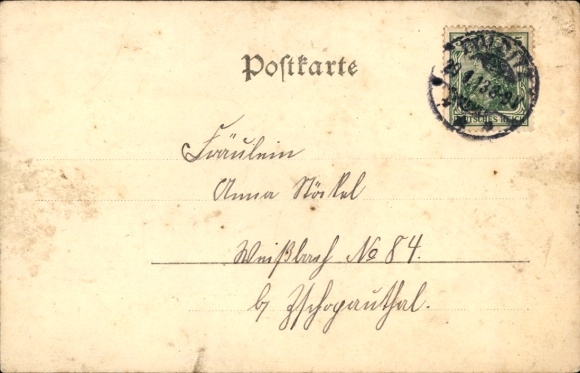 Postkarte
5
DEUTSCHES REICH
Fräulein
Anna Stöckel
Weißbach No 84.
b/ Zschopauthal.